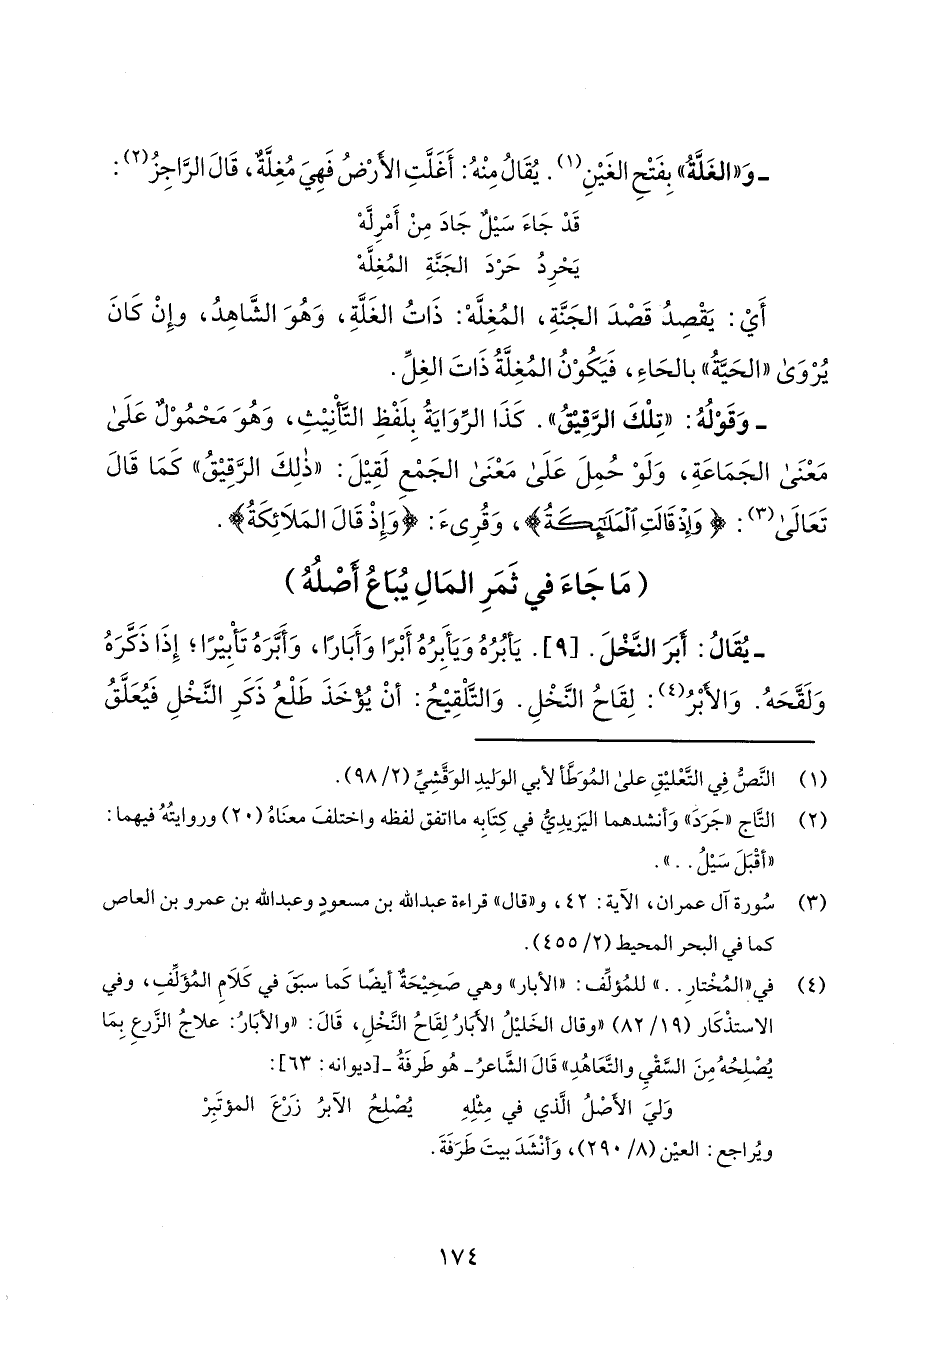 ـ وَ«الغَلَّةُ» بِفَتْحِ الغَيْنِ(١). يُقَالُ مِنْهُ: أَغَلَّتِ الأَرْضُ فَهِيَ مُغِلَّةٌ، قَالَ الرَّاجِزُ(٢):
قَدْ جَاءَ سَيْلٌ جَادَ مِنْ أَمْرِلَّهْ
يَحْرِدُ حَرْدَ الجَنَّةِ المُغِلَّهْ
أَيْ: يَقْصِدُ قَصْدَ الجَنَّةِ، المُغِلَّهْ: ذَاتُ الغَلَّةِ، وَهُوَ الشَّاهِدُ، وإِنْ كَانَ
يُرْوَىٰ «الحَيَّةُ» بالحَاءِ، فَيَكُوْنُ المُغِلَّةُ ذَاتَ الغِلِّ.
ـ وَقَوْلُهُ: «تِلْكَ الرَّقِيْقُ». كَذَا الرِّوَايَةُ بِلَفْظِ التَّأْنِيْثِ، وَهُوَ مَحْمُوْلٌ عَلَىٰ
مَعْنَىٰ الجَمَاعَةِ، وَلَوْ حُمِلَ عَلَىٰ مَعْنَىٰ الجَمْعِ لَقِيْلَ: «ذٰلِكَ الرَّقِيْقُ» كَمَا قَالَ
تَعَالَىٰ(٣): ﴿وَإِذْ قَالَتِ ٱلْمَلَٰٓئِكَةُ﴾، وَقُرِىءَ: ﴿وَإِذْ قَالَ المَلَائِكَةُ﴾.
(مَا جَاءَ في ثَمَرِ المَالِ يُبَاعُ أَصْلُهُ)
ـ يُقَالُ: أَبَرَ النَّخْلَ. [٩]. يَأْبُرُهُ وَيَأْبِرُهُ أَبْرًا وَأَبَارًا، وَأَبَّرَهُ تَأْبِيْرًا؛ إِذَا ذَكَّرَهُ
وَلَقَّحَهُ. وَالأَبْرُ(٤): لِقَاحُ النَّخْلِ. وَالتَّلْقِيْحُ: أَنْ يُؤْخَذَ طَلْعُ ذَكَرِ النَّخْلِ فَيُعَلَّقُ
(١) النَّصُّ فِي التَّعْلِيْقِ علىٰ المُوَطَّأ لأبي الوَلِيدِ الوَقَّشِيِّ (٢/ ٩٨).
(٢) التَّاج «جَرَدَ» وَأنشدهما اليَزِيديُّ في كِتَابِه مااتفق لفظه واختلفَ معنَاهُ (٢٠) وروايتُهُ فيهما:
«أَقْبَلَ سَيْلُ . .».
(٣) سُورة آل عمران، الآية: ٤٢، و«قال» قراءة عبدالله بن مسعودٍ وعبدالله بن عمرو بن العاص
كما في البحر المحيط (٢/ ٤٥٥).
(٤) في«المُخْتار . .» للمُؤلِّف: «الأبار» وهي صَحِيْحَةٌ أيضًا كَما سبَقَ في كَلَامِ المُؤلِّفِ، وفي
الاستذكار (١٩/ ٨٢) «وقال الخَلِيْلُ الأبَارُ لِقَاحُ النَّخْلِ، قَالَ: «والأَبَارُ: علاجُ الزَّرعِ بِمَا
يُصْلِحُهُ مِنَ السَّقْيِ والتَّعَاهُدِ» قَالَ الشَّاعرُـ هُو طَرفَةُ ـ[ديوانه: ٦٣]:
وَلِيَ الأَصْلُ الَّذي في مِثْلِهِ يُصْلِحُ الآبِرُ زَرْعَ المؤتَبِرْ
ويُراجع: العيْن (٨/ ٢٩٠)، وَأَنْشَدَ بيتَ طَرَفَةَ.
١٧٤